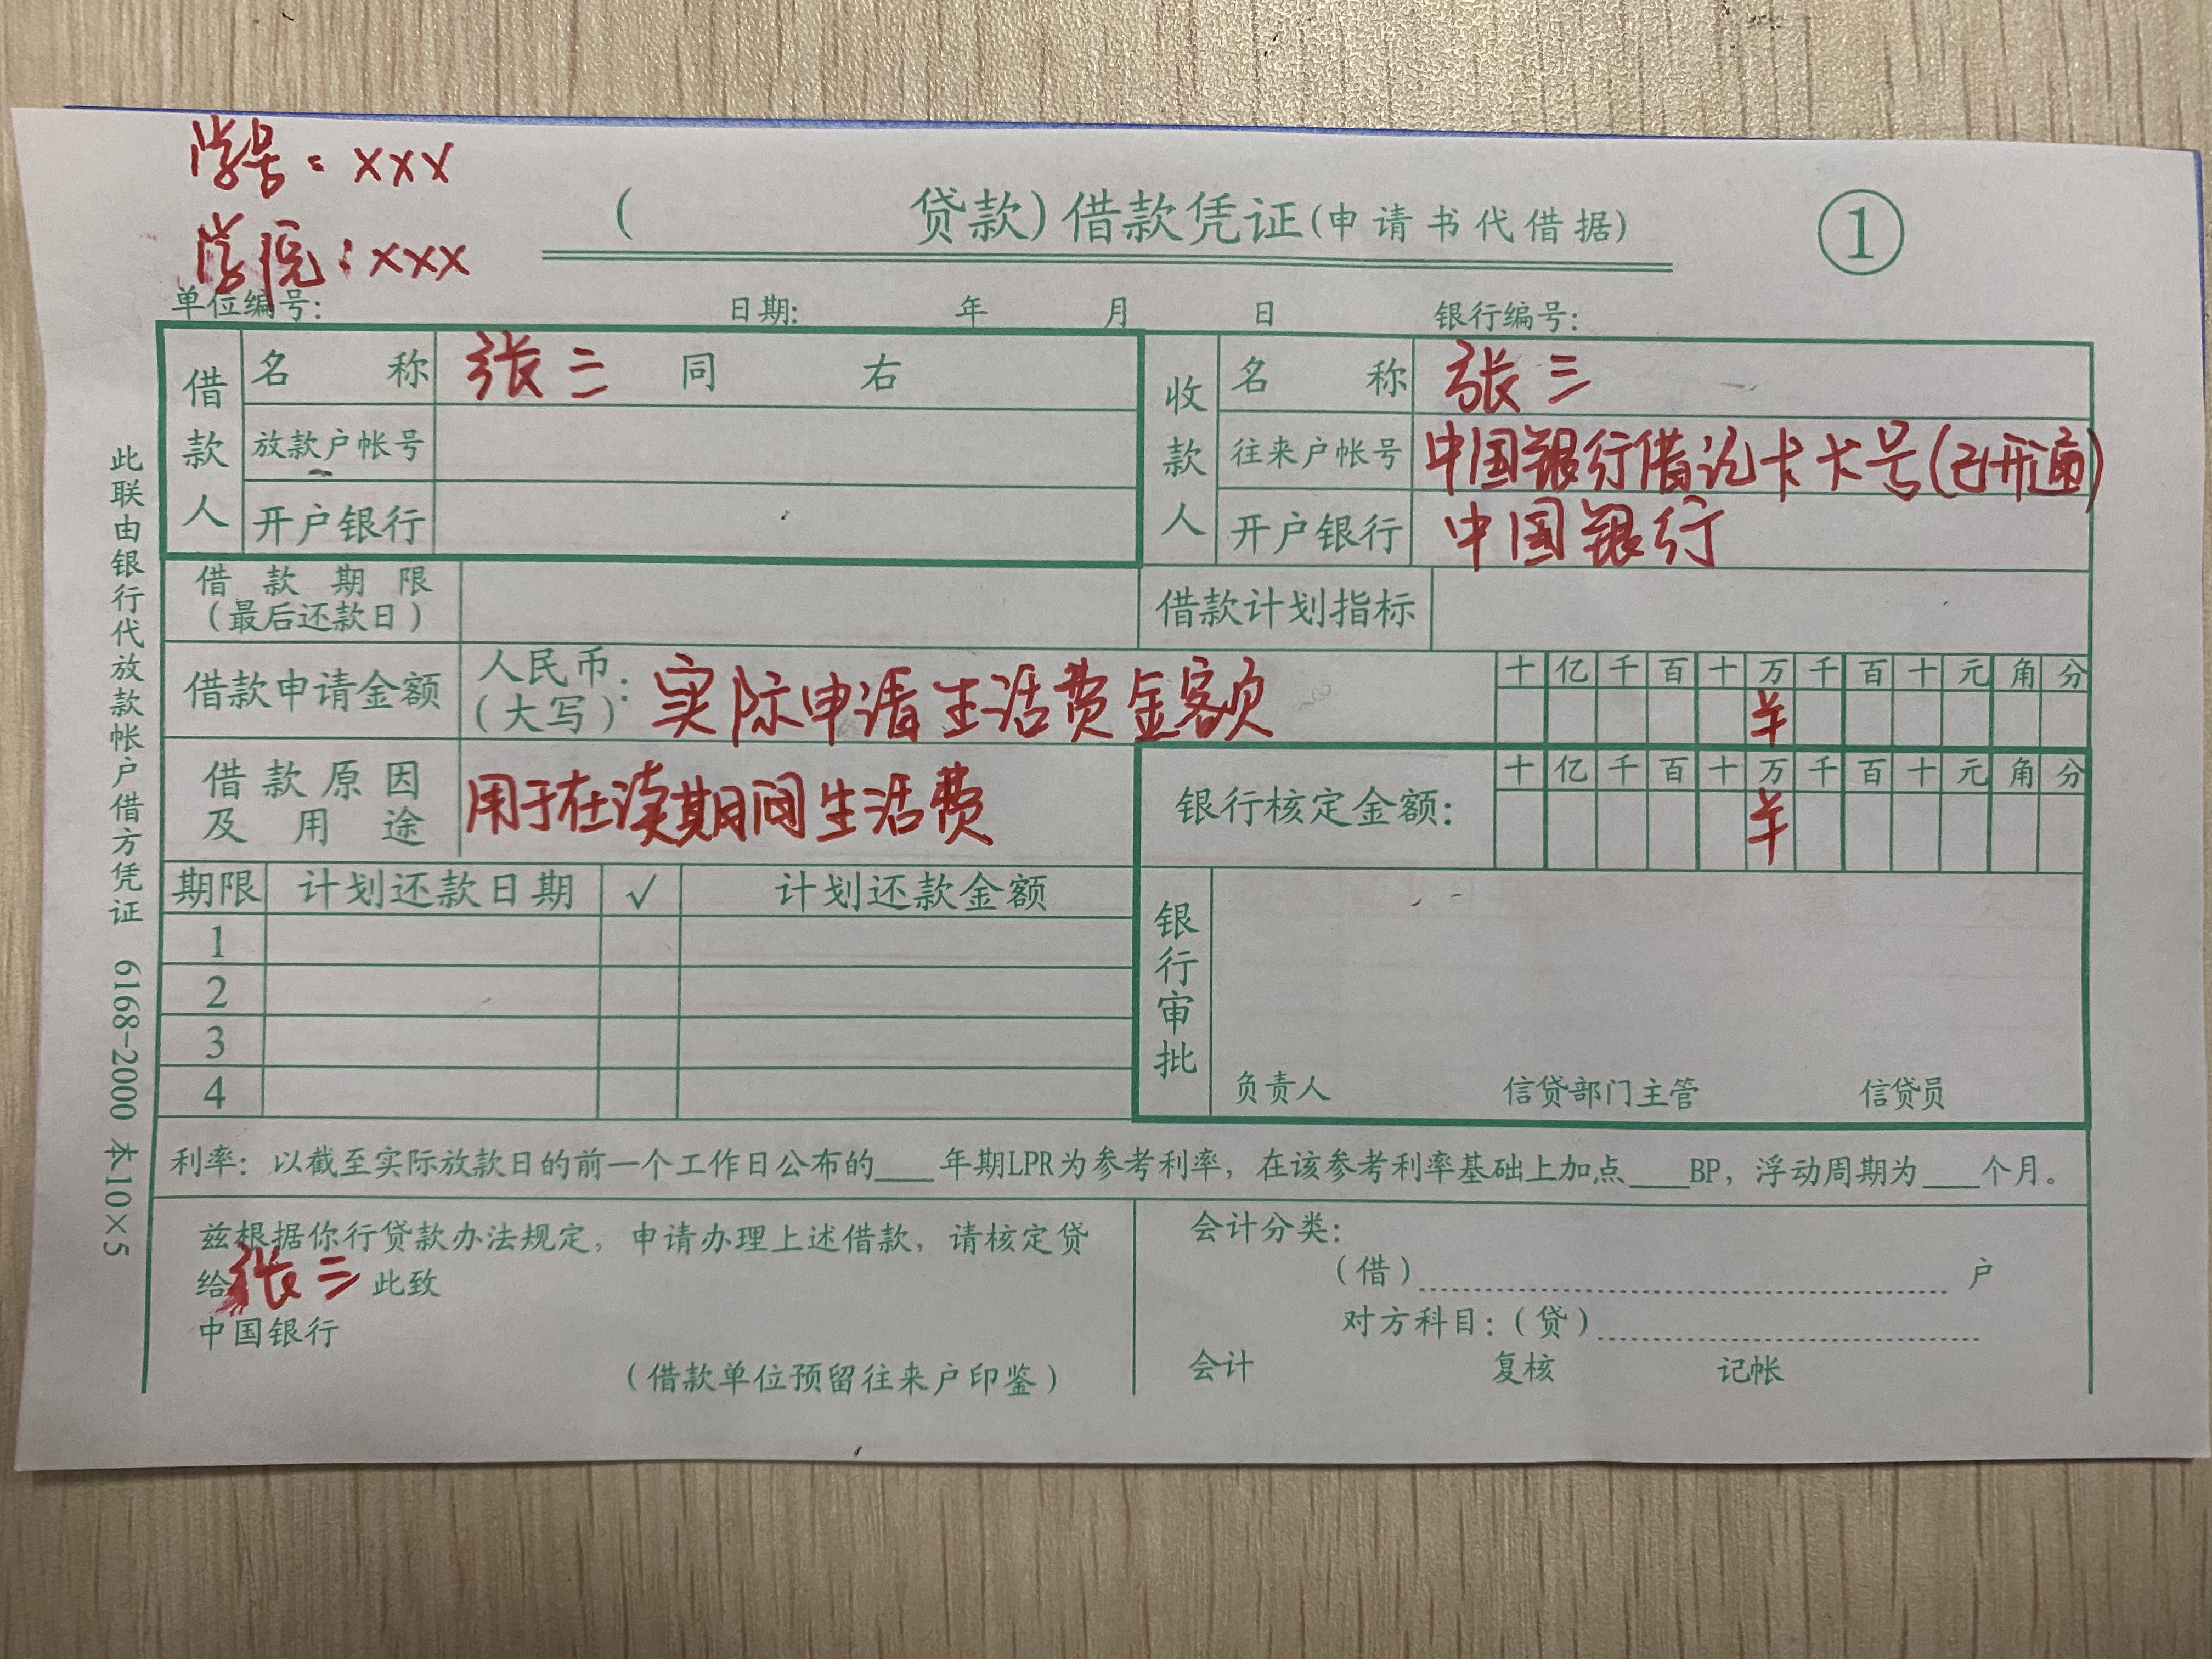 学号：xxx
学院：xxx
（ 贷款）借款凭证（申请书代借据） ①
单位编号： 日期： 年 月 日 银行编号：
借款人 名称 张三 同右 收款人 名称 张三
放款户帐号 往来户帐号 中国银行借记卡卡号（已开通）
开户银行 开户银行 中国银行
借款期限
（最后还款日） 借款计划指标
借款申请金额 人民币：
（大写） 实际申请生活费金额 十 亿 千 百 十 万 千 百 十 元 角 分
¥
借款原因
及用途 用于在读期间生活费 银行核定金额： 十 亿 千 百 十 万 千 百 十 元 角 分
¥
期限 计划还款日期 √ 计划还款金额 银行审批
1
2
3
4
负责人 信贷部门主管 信贷员
利率：以截至实际放款日的前一个工作日公布的___年期LPR为参考利率，在该参考利率基础上加点___BP，浮动周期为___个月。
兹根据你行贷款办法规定，申请办理上述借款，请核定贷
给张三此致
中国银行
（借款单位预留往来户印鉴）
会计分类：
（借） 户
对方科目：（贷）
会计 复核 记帐
此联由银行代放款帐户借方凭证 6168-2000 本10×5